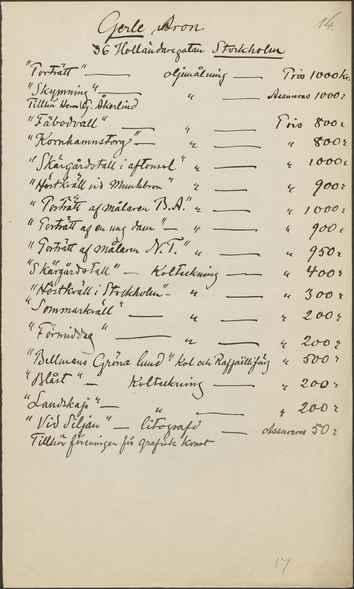 14.
Gerle, Aron
36 Holländaregatan Stockholm
"Porträtt" — oljemålning — Pris 1000 kr.
"Skymning" — " Assureras 1000:
Tillhör Herr Åkerlind
"Fäbodvall" — " — Pris 800:
"Kornhamnstorg" — " — " 800:
"Skärgårdstall i aftonsol" " — " 1000:
"Höstkväll vid Munkbron" " — " 900:
"Porträtt af målaren B.A." " — " 1000:
"Porträtt af en ung dam" — " — " 900:
"Porträtt af målaren N.T." " — " 950:
"Skärgårdstall" — Kolteckning — " 400:
"Höstkväll i Stockholm" — " — " 300:
"Sommarkväll" — " — " 200:
"Förmiddag" — " — " 200:
"Bellmans Gröna lund" Kol och Raffaëllifärg " 500:
"Blåst" — Kolteckning — " 200:
"Landskap" — " — " 200:
"Vid Siljan" — litografi — Assureras 50:
Tillhör föreningen för grafisk konst
17